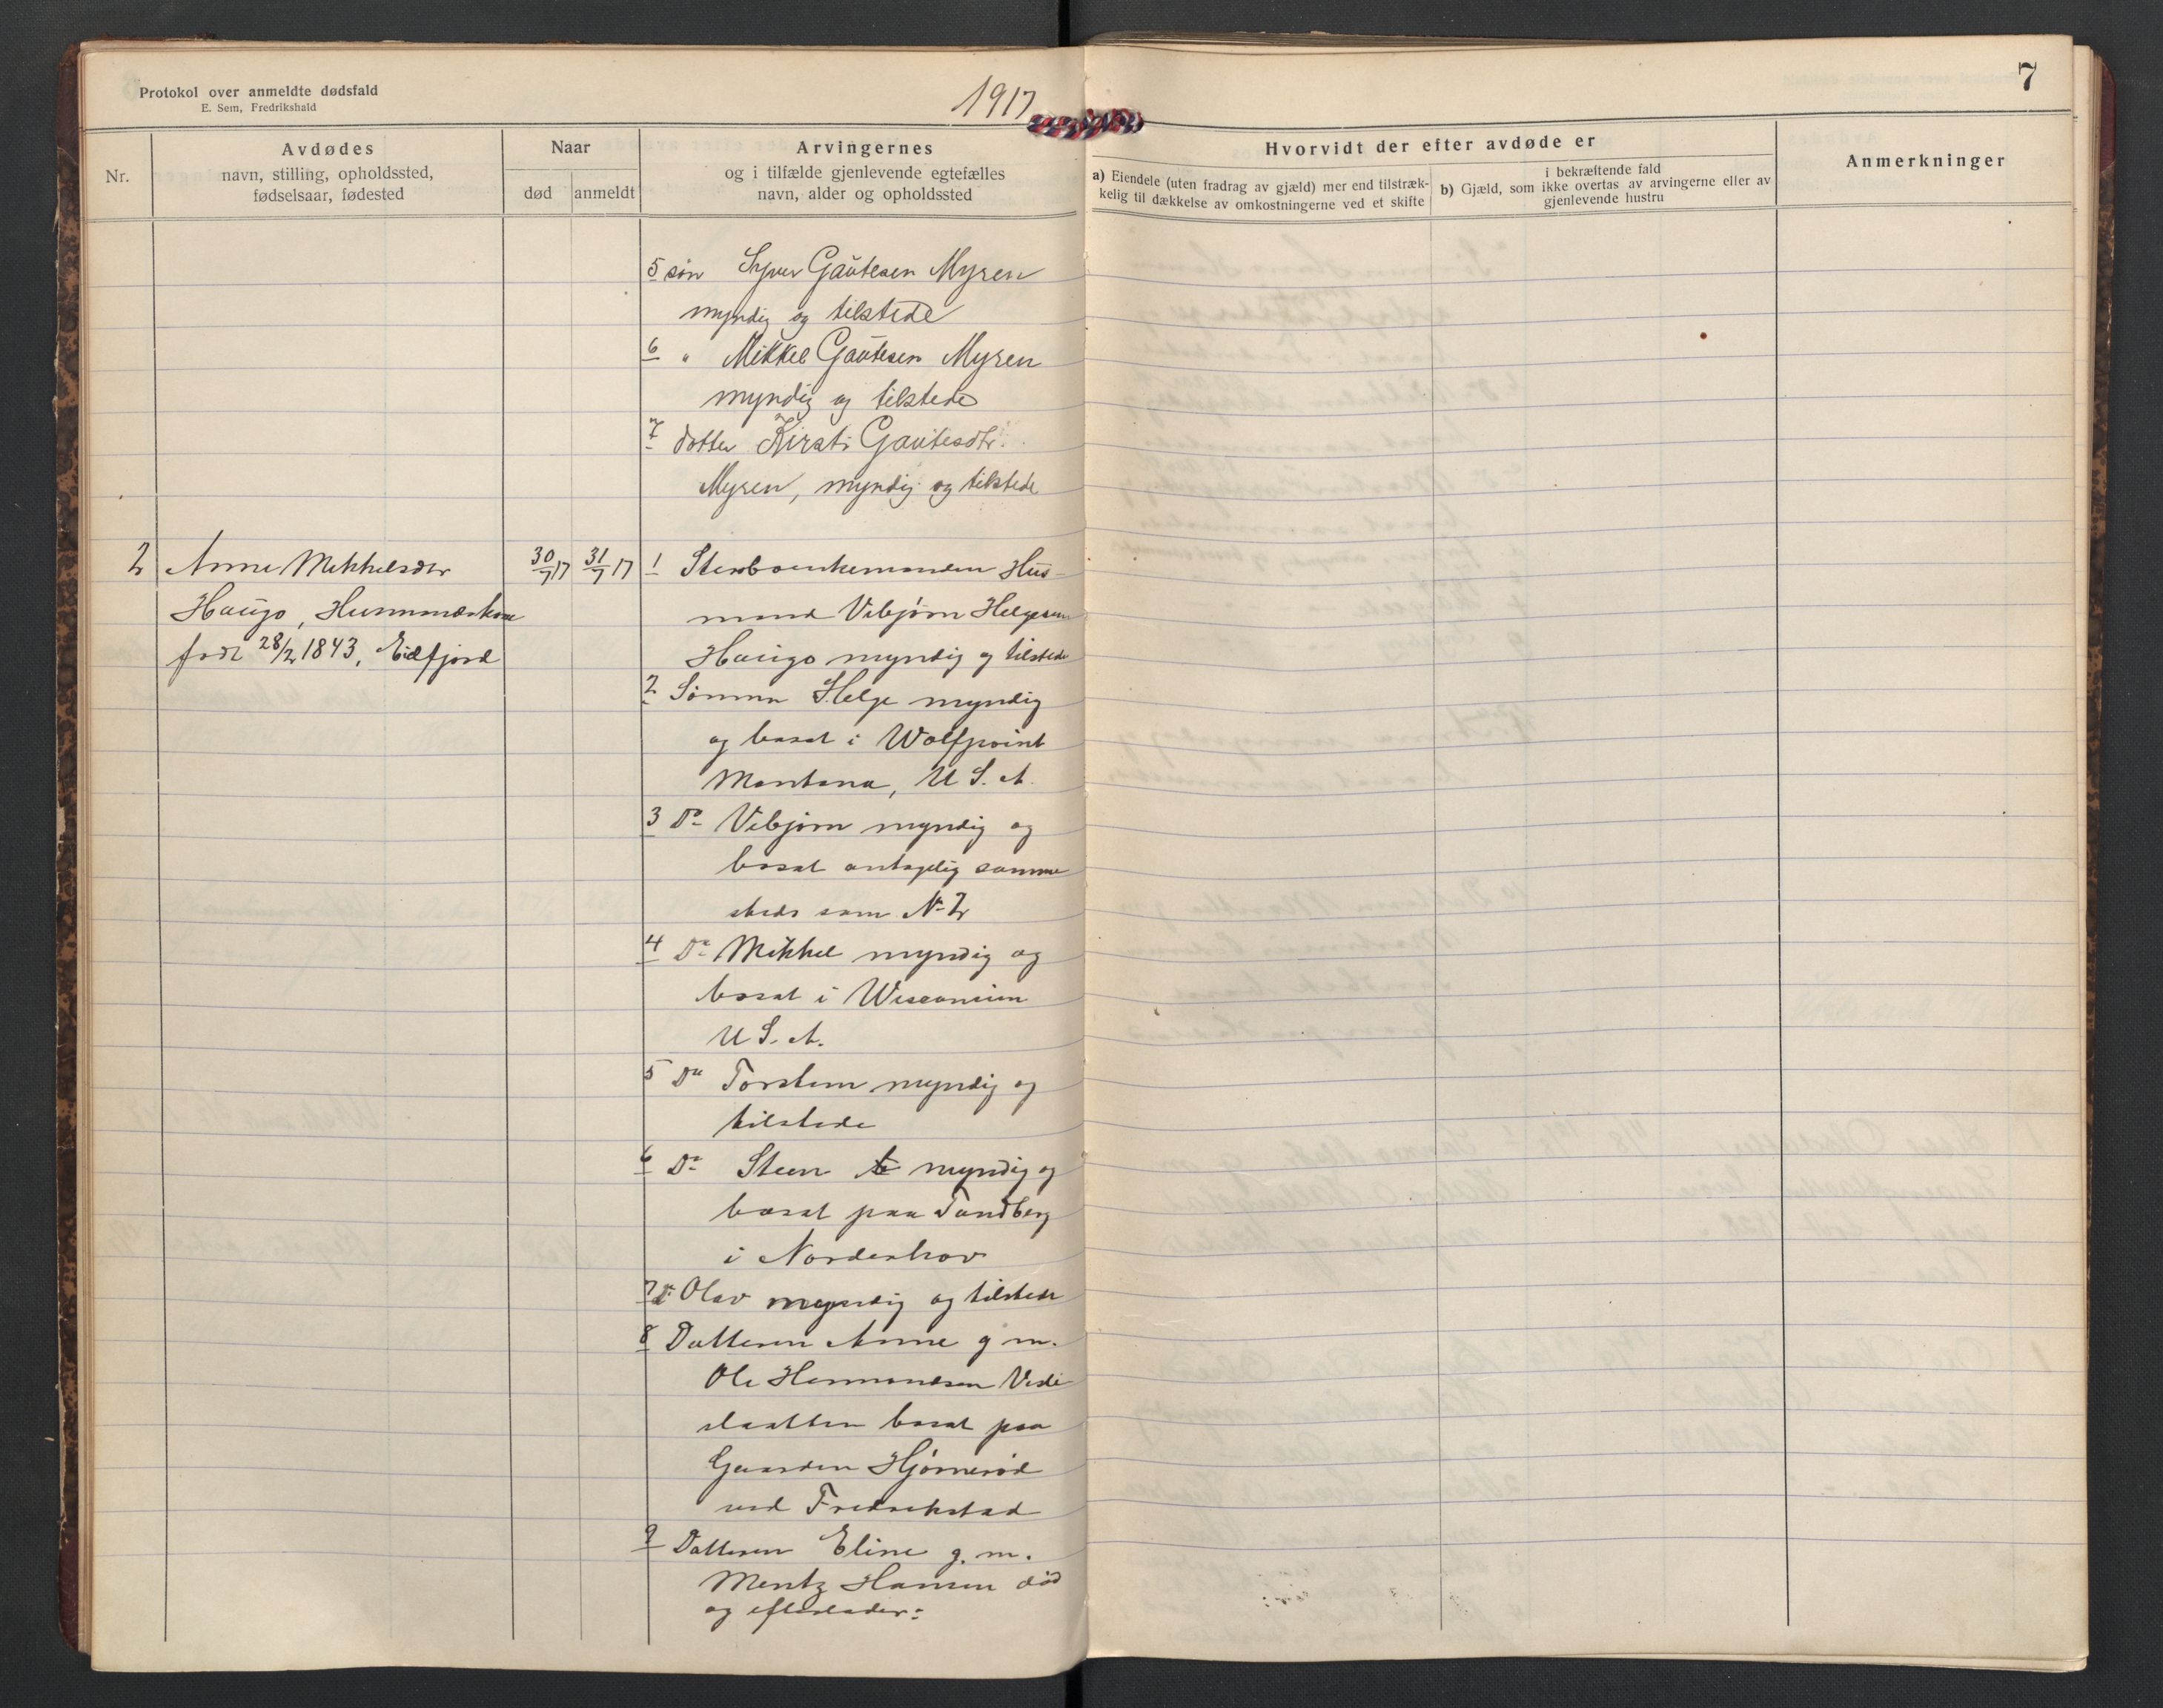 Protokol over anmeldte dødsfald
E. Sem, Fredrikshald
1917
7
Nr.
Avdødes
navn, stilling, opholdssted,
fødselsaar, fødested
Naar
død
anmeldt
Arvingernes
og i tilfælde gjenlevende egtefælles
navn, alder og opholdssted
Hvorvidt der efter avdøde er
a) Eiendele (uten fradrag av gjæld) mer end tilstræk-
kelig til dækkelse av omkostningerne ved et skifte
i bekræftende fald
b) Gjæld, som ikke overtas av arvingerne eller av
gjenlevende hustru
Anmerkninger
5 søn Syver Gautesen Myren
myndig og tilstede
6 " Mikkel Gautesen Myren
myndig og tilstede
7 datter Kirsti Gautesdtr.
Myren, myndig og tilstede
2 Anne Mikkelsdtr
Haugo, Husmandskone
født 28/2 1843, Eidfjord
30/7 17 31/7 17
1 Sterboenkemanden Hus-
mand Vebjørn Helgesen
Haugo myndig og tilstede
2 Sønnen Helge myndig
og bosat i Wolfpoint
Montana, U S. A.
3 Do Vebjørn myndig og
bosat antagelig samme
steds som No 2
4 Do Mikkel myndig og
bosat i Wisconsin
U S. A.
5 Do Torstein myndig og
tilstede
6 Do Steen t myndig og
bosat paa Tandberg
i Norderhov
7 Do Olav myndig og tilstede
8 Datteren Anne g m.
Ole Hermandsen Vesle
slaatten bosat paa
Gaarden Hjørnerød
ved Fredrikstad
9 Datteren Eline g. m.
Mentz Hansen død
og efterlader: